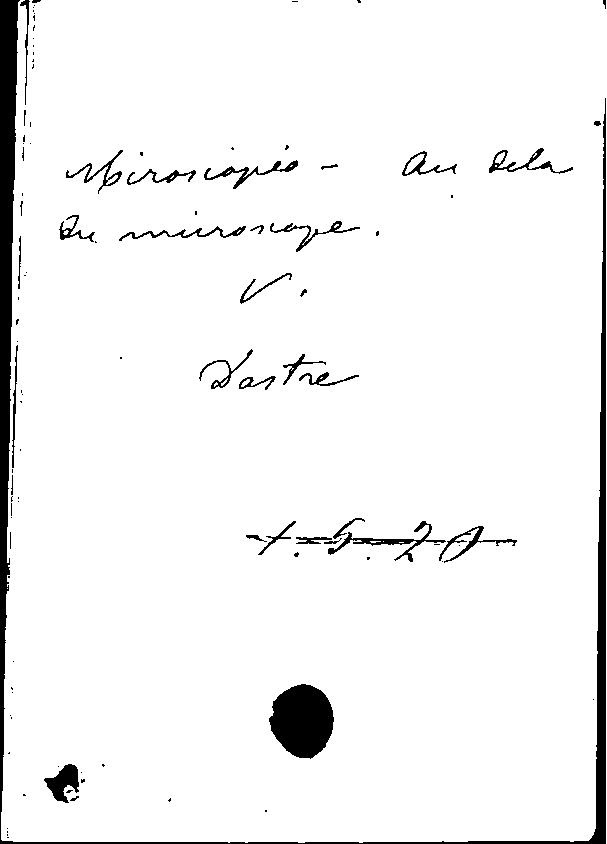 Microscopie - Au dela
du microscope.
V.
Dastre
1.5.20